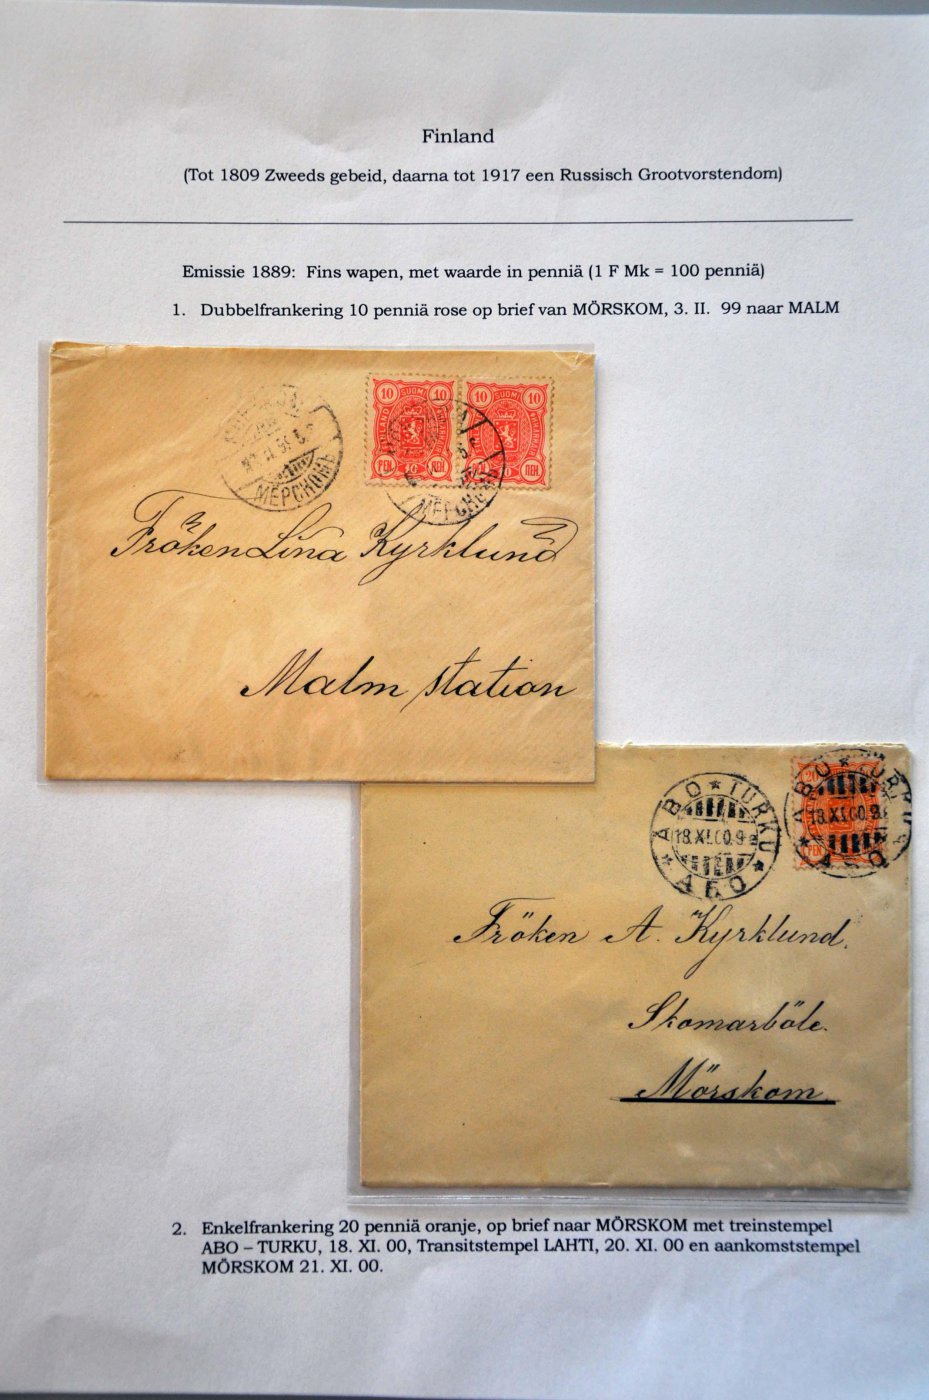 Finland
(Tot 1809 Zweeds gebeid, daarna tot 1917 een Russisch Grootvorstendom)
Emissie 1889: Fins wapen, met waarde in penniä (1 F Mk = 100 penniä)
1. Dubbelfrankering 10 penniä rose op brief van MÖRSKOM, 3. II. 99 naar MALM
10 SUOMI 10
10 SUOMI 10
FINLAND
PEN ПЕН
10 ПЕН
МЕРСКОМЪ
МЕРСКОМЪ
Fröken Lina Kyrklund
Malm station
ÅBO TURKU
18.XI.00.9
АБО
20
ÅBO TURKU
18.XI.00.9
PEN
АБО
Fröken A. Kyrklund.
Skomarböle.
Mörskom.
2. Enkelfrankering 20 penniä oranje, op brief naar MÖRSKOM met treinstempel
ABO – TURKU, 18. XI. 00, Transitstempel LAHTI, 20. XI. 00 en aankomststempel
MÖRSKOM 21. XI. 00.